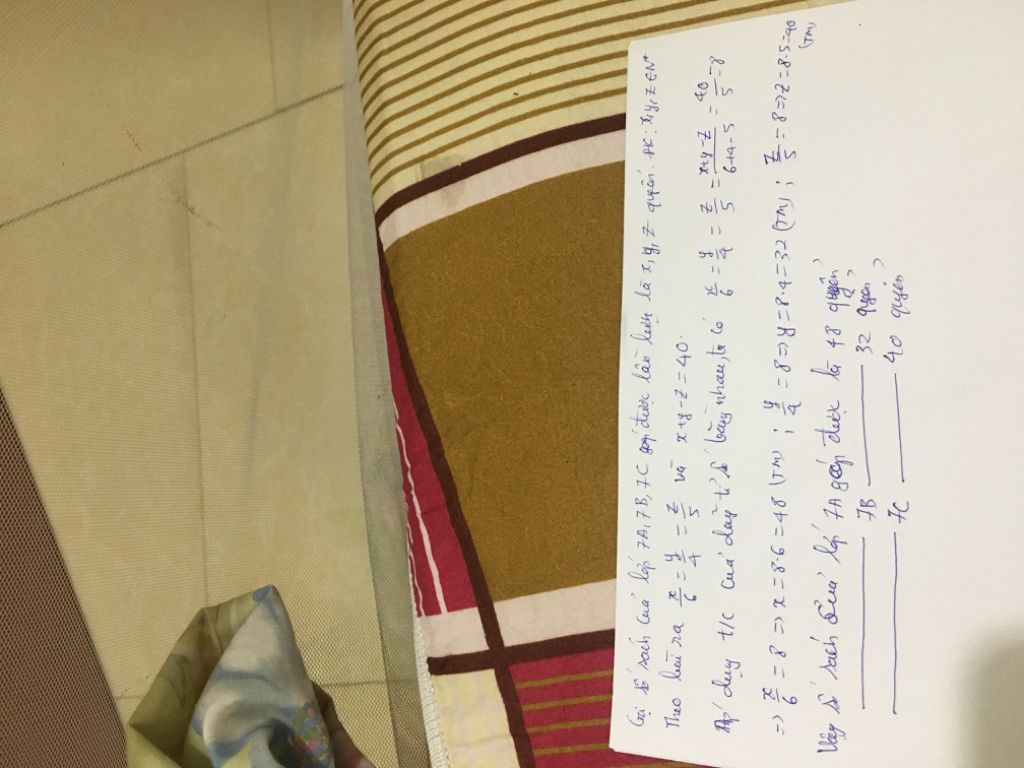 Gọi số sách của lớp 7A, 7B, 7C góp được lần lượt là x, y, z quyển. ĐK: x, y, z ∈ N*
Theo bài ra x/6 = y/4 = z/5 và x+y-z = 40.
Áp dụng t/c của dãy tỉ số bằng nhau, ta có x/6 = y/4 = z/5 = x+y-z/6+4-5 = 40/5 = 8
=> x/6 = 8 => x = 8.6 = 48 (TM) ; y/4 = 8 => y = 8.4 = 32 (TM) ; z/5 = 8 => z = 8.5 = 40 (TM)
Vậy số sách của lớp 7A góp được là 48 quyển
7B 32 quyển
7C 40 quyển